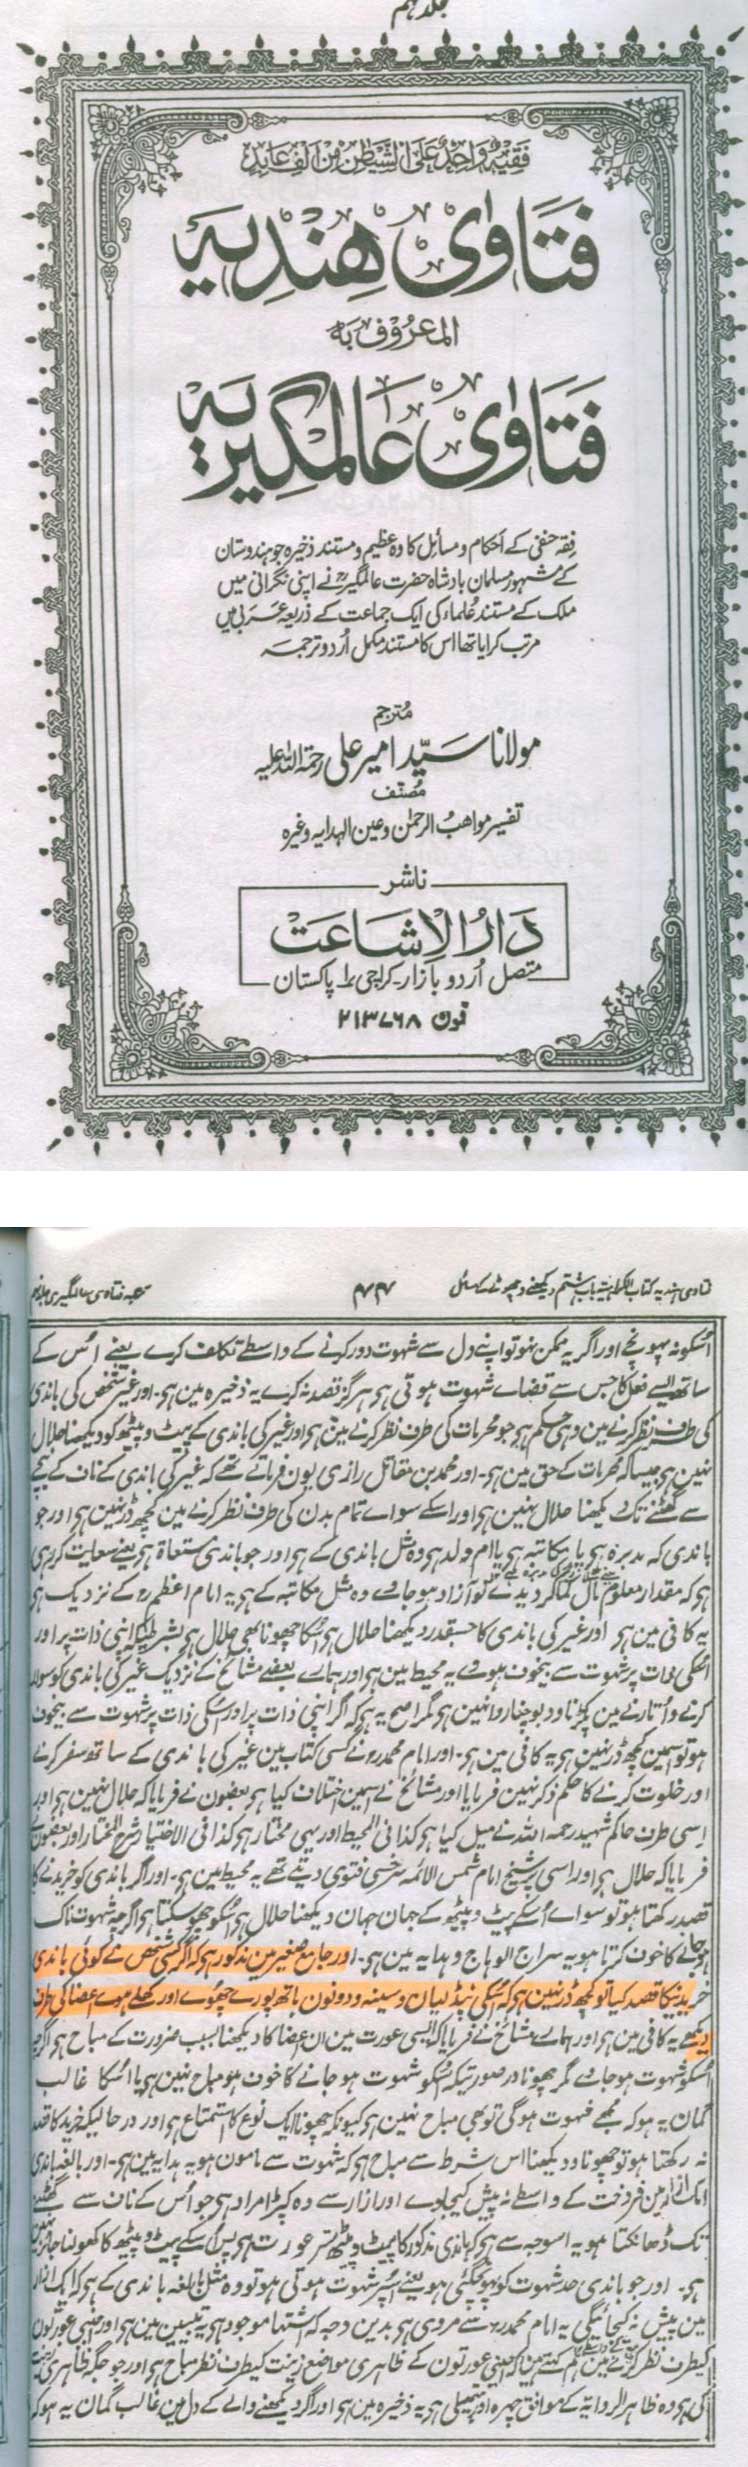 جلد نہم
فَقِيْهٌ وَاحِدٌ عَلَى الشَّيْطٰنِ مِنْ اَلْفِ عَابِدٍ
فَتَاوٰی ہِندیہ
المعروف بہ
فَتَاوٰی عَالمگیریہ
فقہ حنفی کے احکام و مسائل کا وہ عظیم و مستند ذخیرہ جو ہندوستان
کے مشہور مسلمان بادشاہ حضرت عالمگیرؒ نے اپنی نگرانی میں
ملک کے مستند علماء کی ایک جماعت کے ذریعہ عربی میں
مرتب کرایا تھا اس کا مستند مکمل اردو ترجمہ
مُترجم
مولانا سیّد امیر علی رحمۃ اللہ علیہ
مُصنّف
تفسیر مواہب الرحمٰن و عین الہدایہ وغیرہ
ناشر
دَارُ الاِشَاعَت
متصل اُردو بازار۔ کراچی ۱ پاکستان
فون ۲۱۳۷۶۸
فتاوی ہندیہ کتاب الکراہیۃ باب ہشتم دیکھنے و چھونے کے مسائل
ترجمہ فتاوی عالمگیری جلد نہم
اُسکو نہ پہونچے اور اگر یہ ممکن نہو تو اپنے دل سے شہوت دور کرنے کے واسطے تکلف کرے یعنے اُس کے
ساتھ ایسے فعل کا جس سے قضاے شہوت ہوتی ہی ہرگز قصد نہ کرے یہ ذخیرہ مین ہی۔ اور غیر شخص کی باندی
کی طرف نظر کرنے مین وہی حکم ہی جو محرمات کی طرف نظر کرنے مین ہی اور غیر کی باندی کے پیٹ و پیٹھ کو دیکھنا حلال
نہین ہی جیسا کہ محرمات کے حق مین ہی۔ اور محمد بن مقاتل رازی یون فرماتے تھے کہ غیر کی باندی کے ناف کے نیچے
سے گھٹنے تک دیکھنا حلال نہین ہی اور اسکے سواے تمام بدن کی طرف نظر کرنے مین کچھ ڈر نہین ہی اور جو
باندی کہ مدبرہ ہی یا مکاتبہ ہی یا ام ولد ہی وہ مثل باندی کے ہی اور جو باندی مستسعاۃ ہی یعنے سعایت کر رہی
ہی کہ مقدار معلوم مال کما کر دیدے تو آزاد ہو جاوے وہ مثل مکاتبہ کے ہی یہ امام اعظم رہ کے نزدیک ہی
یہ کافی مین ہی اور غیر کی باندی کا جسقدر دیکھنا حلال ہی اُسکا چھونا بھی حلال ہی بشرطیکہ اپنی ذات پر اور
اُسکی ذات پر شہوت سے بیخوف ہووے یہ محیط مین ہی اور ہمارے بعضے مشائخ کے نزدیک غیر کی باندی کو سوار
کرنے و اُتارنے مین پکڑنا و دبوچنا روا نہین ہی مگر اصح یہ ہی کہ اگر اپنی ذات پر اور اُسکی ذات پر شہوت سے بیخوف
ہو تو اسمین کچھ ڈر نہین ہی یہ کافی مین ہی۔ اور امام محمد رہ نے کسی کتاب مین غیر کی باندی کے ساتھ سفر کرنے
اور خلوت کرنے کا حکم ذکر نہین فرمایا اور مشائخ نے اسمین اختلاف کیا ہی بعضون نے فرمایا کہ حلال نہین ہی اور
اِسی طرف حاکم شہید رحمہ اللہ نے میل کیا ہی کذا فی المحیط اور یہی مختار ہی کذا فی الاختیار شرح المختار اور بعضون نے
فرمایا کہ حلال ہی اور اسی پر شیخ امام شمس الائمہ سرخسی فتوی دیتے تھے یہ محیط مین ہی۔ اور اگر باندی کو خریدنے کا
قصد رکھتا ہو تو سواے اُسکے پیٹ و پیٹھ کے جہان جہان دیکھنا حلال ہی اُسکو چھو سکتا ہی اگرچہ شہوت ناک
ہو جانے کا خوف کرتا ہو یہ سراج الوہاج و ہدایہ مین ہی۔ اور جامع صغیر مین مذکور ہی کہ اگر کسی شخص نے کوئی باندی
خریدنیکا قصد کیا تو کچھ ڈر نہین ہی کہ اُسکی پنڈلیان و سینہ و دونون ہاتھ پورے چھوے اور کھلے ہوے اعضا کی طرف
دیکھے یہ کافی مین ہی اور ہمارے مشائخ نے فرمایا کہ ایسی عورت مین ان اعضا کا دیکھنا بسبب ضرورت کے مباح ہی اگرچہ
اُسکو شہوت ہو جاوے مگر چھونا در صورتیکہ اُسکو شہوت ہو جانے کا خوف ہو مباح نہین ہی یا اُسکا غالب
گمان یہ ہو کہ مجھے شہوت ہوگی تو بھی مباح نہین ہی کیونکہ چھونا ایک نوع کا استمتاع ہی اور در حالیکہ خرید کا قصد
نہ رکھتا ہو تو چھونا و دیکھنا اس شرط سے مباح ہی کہ شہوت سے مامون ہو یہ ہدایہ مین ہی۔ اور بالغہ باندی
ایک ازار مین فروخت کے واسطے نہ پیش کیجاوے اور ازار سے وہ کپڑا مراد ہی جو اُس کے ناف سے گھٹنے
تک ڈھانکتا ہو یہ اسوجہ سے ہی کہ باندی مذکور کا پیٹ و پیٹھ ستر عورت ہی پس اُسکے پیٹ و پیٹھ کا کھولنا جائز نہین
ہی۔ اور جو باندی حد شہوت کو پہونچ گئی ہو یعنے اُسپر شہوت ہوتی ہو تو وہ مثل بالغہ باندی کے ہی کہ ایک ازار
مین پیش نہ کیجائیگی یہ امام محمد رہ سے مروی ہی بدین وجہ کہ اشتہا موجود ہی یہ تبیین مین ہی اور اجنبی عورتون
کیطرف نظر کرنے مین ہم کہتے ہین کہ اجنبی عورتون کے ظاہری مواضع زینت کیطرف نظر مباح ہی اور جو جگہ ظاہری زینت
کی ہی وہ ظاہر الروایۃ کے موافق چہرہ اور ہتھیلی ہی یہ ذخیرہ مین ہی اور اگر دیکھنے والے کے دل مین غالب گمان یہ ہو کہ